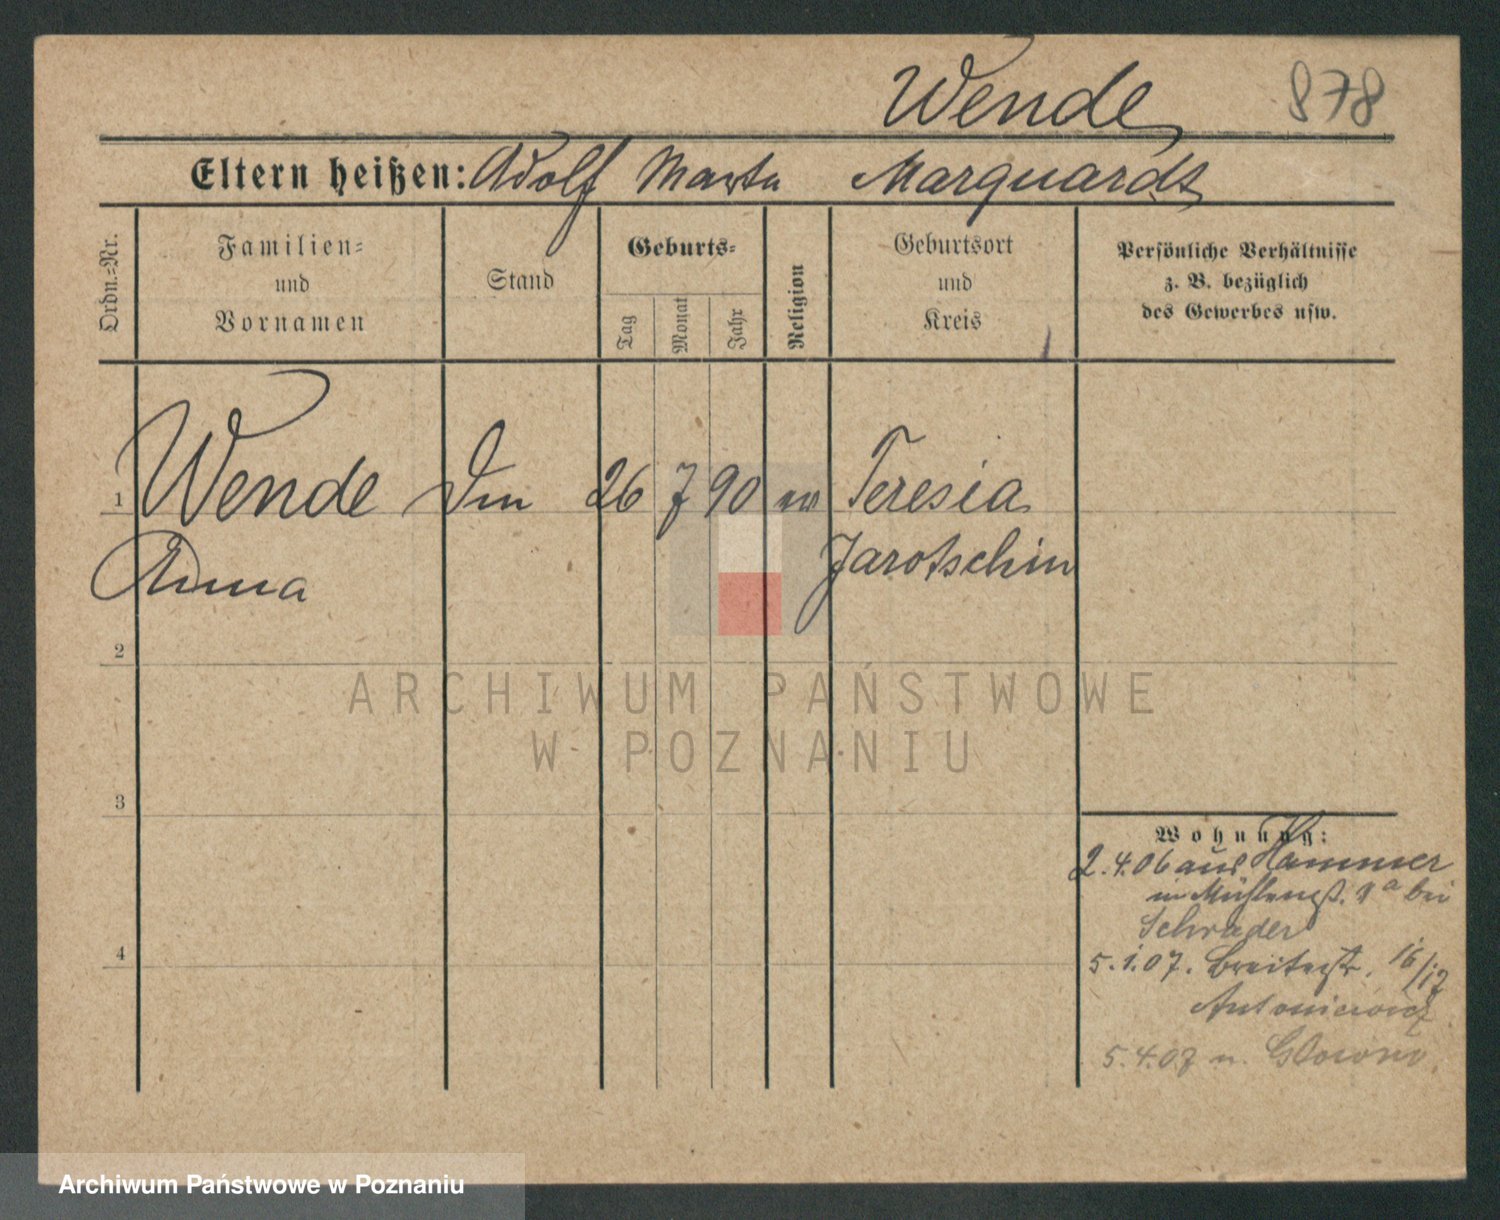 Wende 878
Eltern heißen: Adolf Marta Marquardt
Ordn.=Nr.
Familien=
und
Vornamen
Stand
Geburts=
Tag
Monat
Jahr
Religion
Geburtsort
und
Kreis
Persönliche Verhältnisse
z. B. bezüglich
des Gewerbes usw.
1 Wende 26 7 90 ev Teresia
Anna Jarotschin
2
ARCHIWUM PAŃSTWOWE
W POZNANIU
3
Wohnung:
2.4.06 aus Hammer
in Mühlengst. 8a bei
Schrader
4
5.1.07. Breitestr. 16/17
Antoniewicz
5.4.07 n.
Archiwum Państwowe w Poznaniu